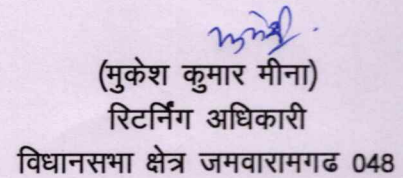 (मुकेश कुमार मीना)
रिटर्निंग अधिकारी
विधानसभा क्षेत्र जमवारामगढ 048